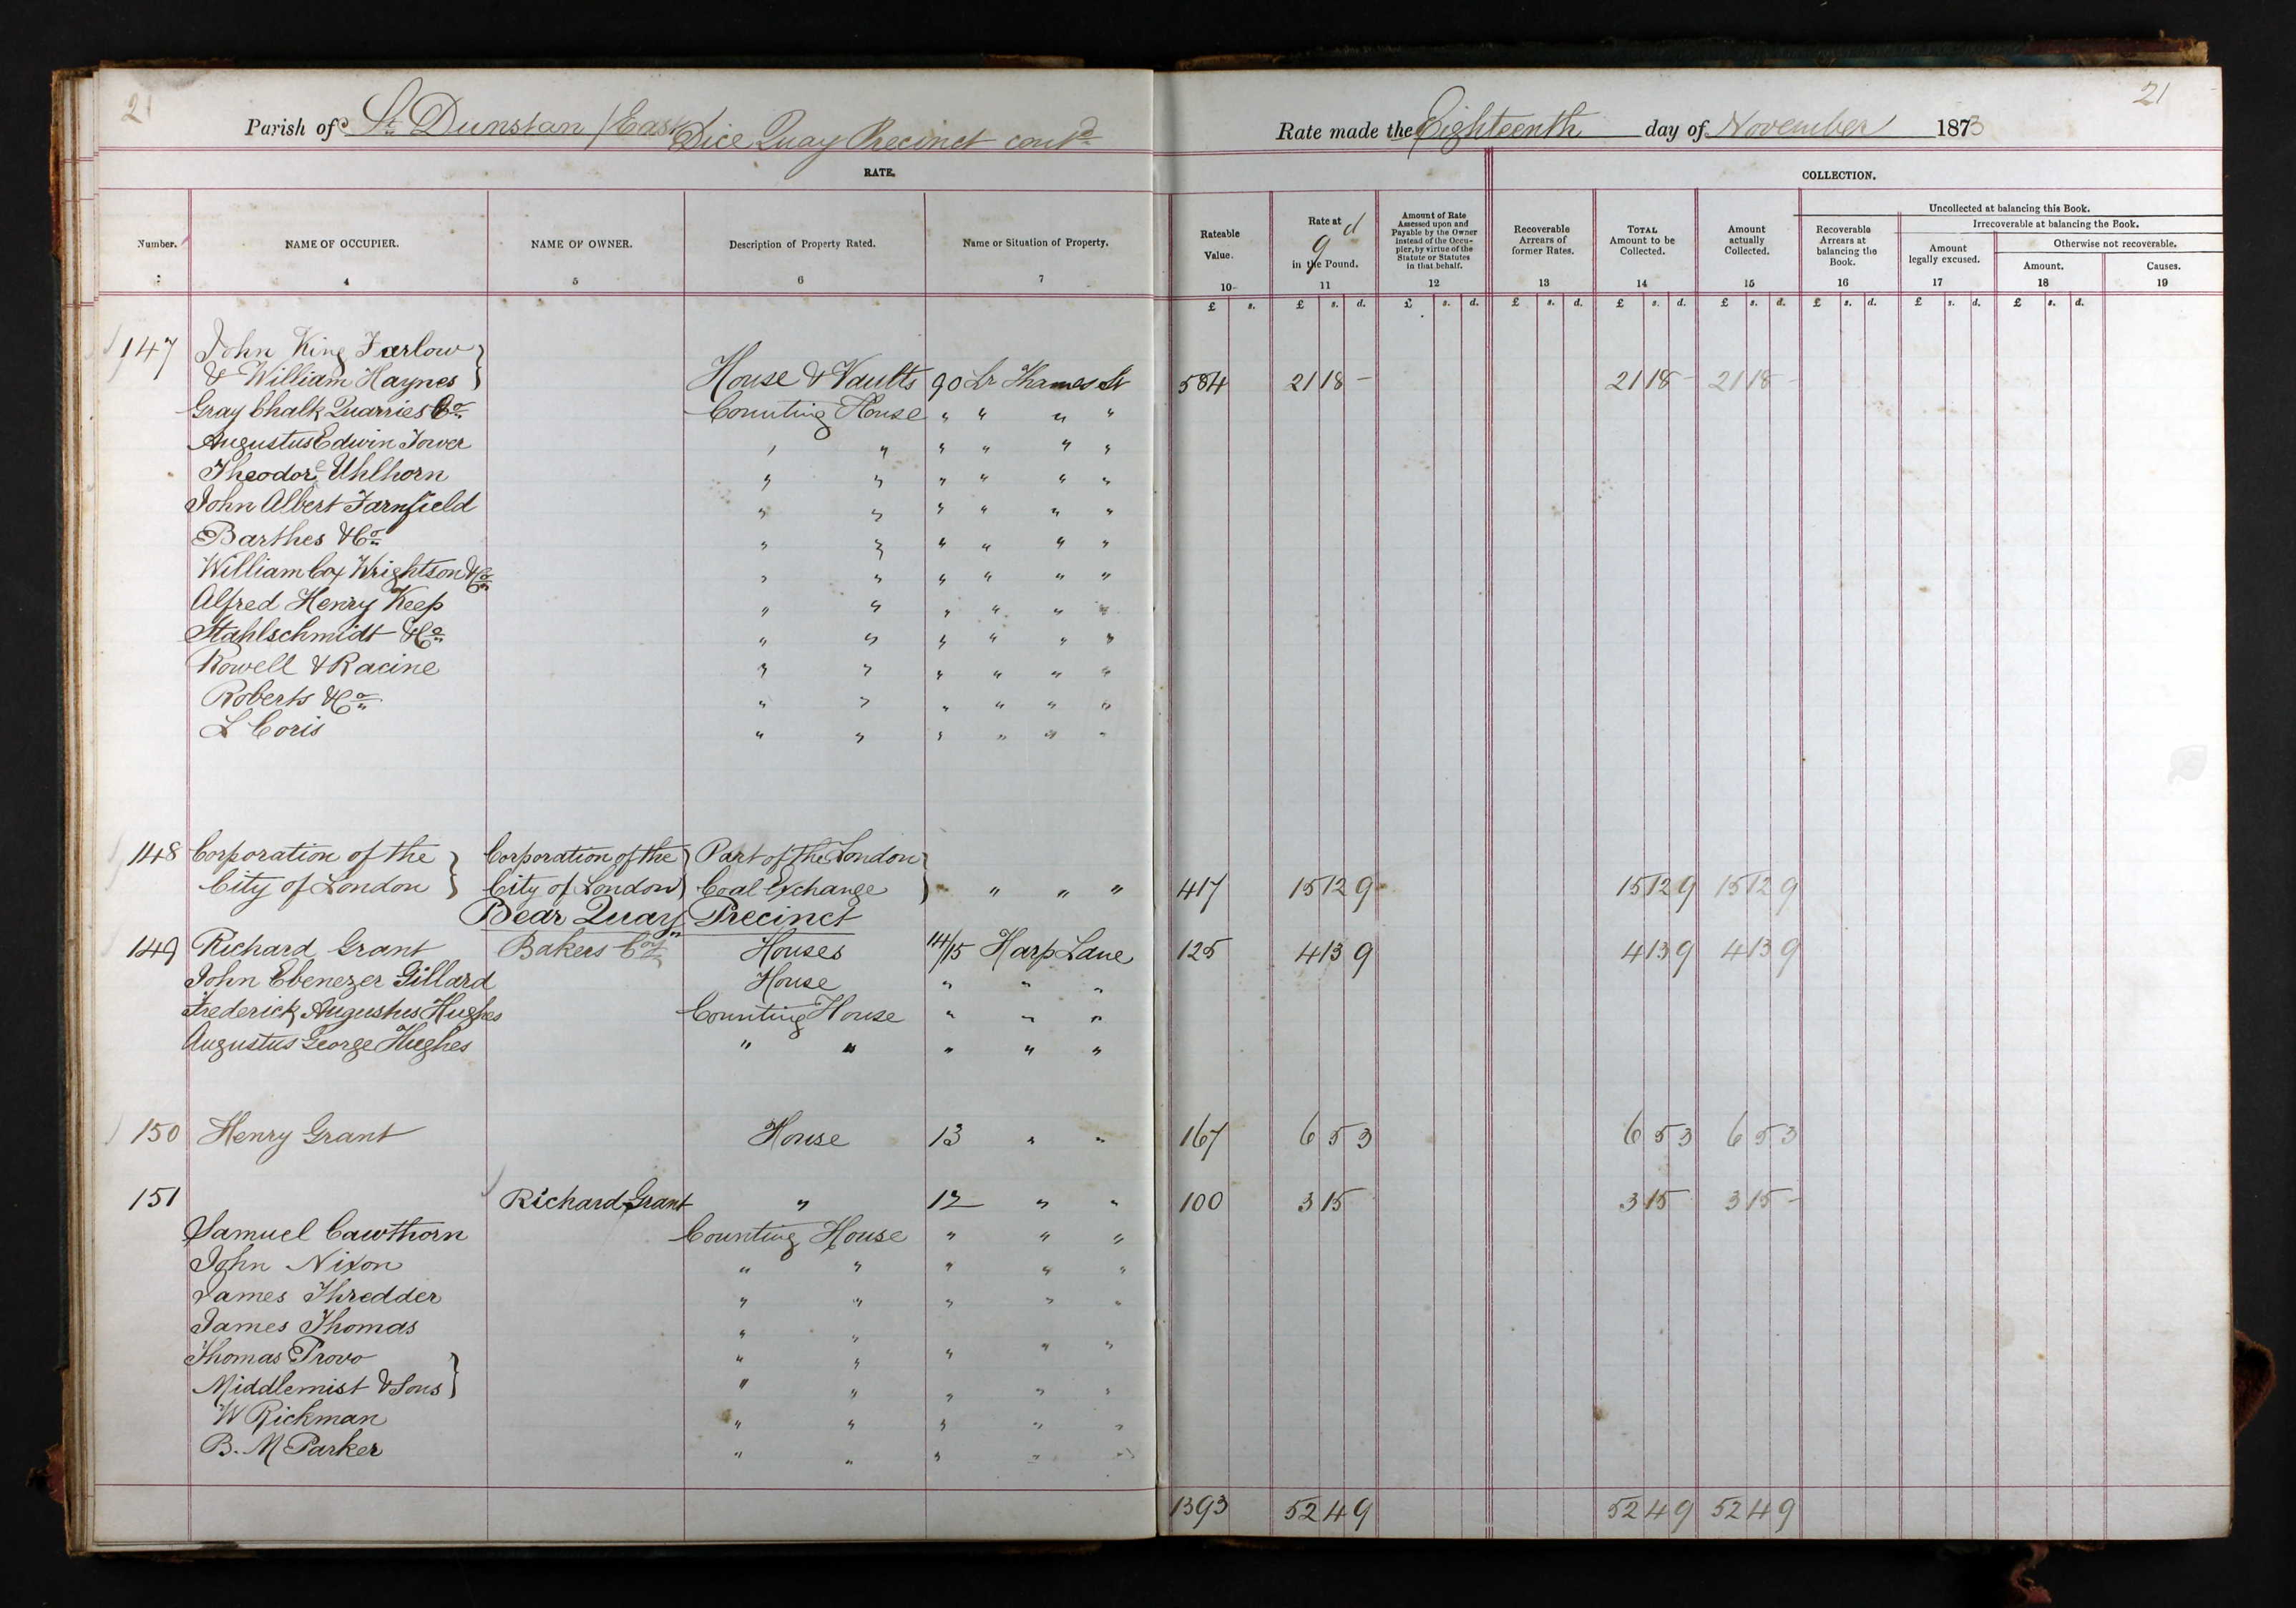 21
Parish of St Dunstan / East Dice Quay Precinct contd
RATE.
Number.
NAME OF OCCUPIER.
NAME OF OWNER.
Description of Property Rated.
Name or Situation of Property.
4 5 6 7
147 John King Farlow }
& William Haynes } House & Vaults 90 Lr Thames St
Gray Chalk Quarries Co Counting House " " " "
Augustus Edwin Tower " " " " " "
Theodore Uhlhorn " " " " " "
John Albert Farnfield " " " " " "
Barthes & Co " " " " " "
William Cox Wrightson & Co " " " " " "
Alfred Henry Keep " " " " " "
Stahlschmidt & Co " " " " " "
Rowell & Racine " " " " " "
Roberts & Co " " " " " "
L Coris " " " " " "
148 Corporation of the } Corporation of the } Part of the London }
City of London } City of London } Coal Exchange } " " "
Bear Quay Precinct
149 Richard Grant Bakers Coy Houses 14/15 Harp Lane
John Ebenezer Gillard House " " "
Frederick Augustus Hughes Counting House " " "
Augustus George Hughes " " " " "
150 Henry Grant House 13 " "
151 Richard Grant " 12 " "
Samuel Cawthorn Counting House " " "
John Nixon " " " " "
James Thredder " " " " "
James Thomas " "
Thomas Provo } " " " " "
Middlemist & Sons } " " " " "
W Rickman " " " " "
B. M Parker " " " " "
21
Rate made the Eighteenth day of November 1873
COLLECTION.
Uncollected at balancing this Book.
Irrecoverable at balancing the Book.
Otherwise not recoverable.
Rateable Value.
Rate at 9d in the Pound.
Amount of Rate Assessed upon and Payable by the Owner instead of the Occupier, by virtue of the Statute or Statutes in that behalf.
Recoverable Arrears of former Rates.
TOTAL Amount to be Collected.
Amount actually Collected.
Recoverable Arrears at balancing the Book.
Amount legally excused.
Amount.
Causes.
10 11 12 13 14 15 16 17 18 19
£ s. £ s. d. £ s. d. £ s. d. £ s. d. £ s. d. £ s. d. £ s. d. £ s. d.
584 21 18 - 21 18 - 21 18 -
417 15 12 9 15 12 9 15 12 9
125 4 13 9 4 13 9 4 13 9
167 6 5 3 6 5 3 6 5 3
100 3 15 3 15 3 15 -
1393 52 4 9 52 4 9 52 4 9